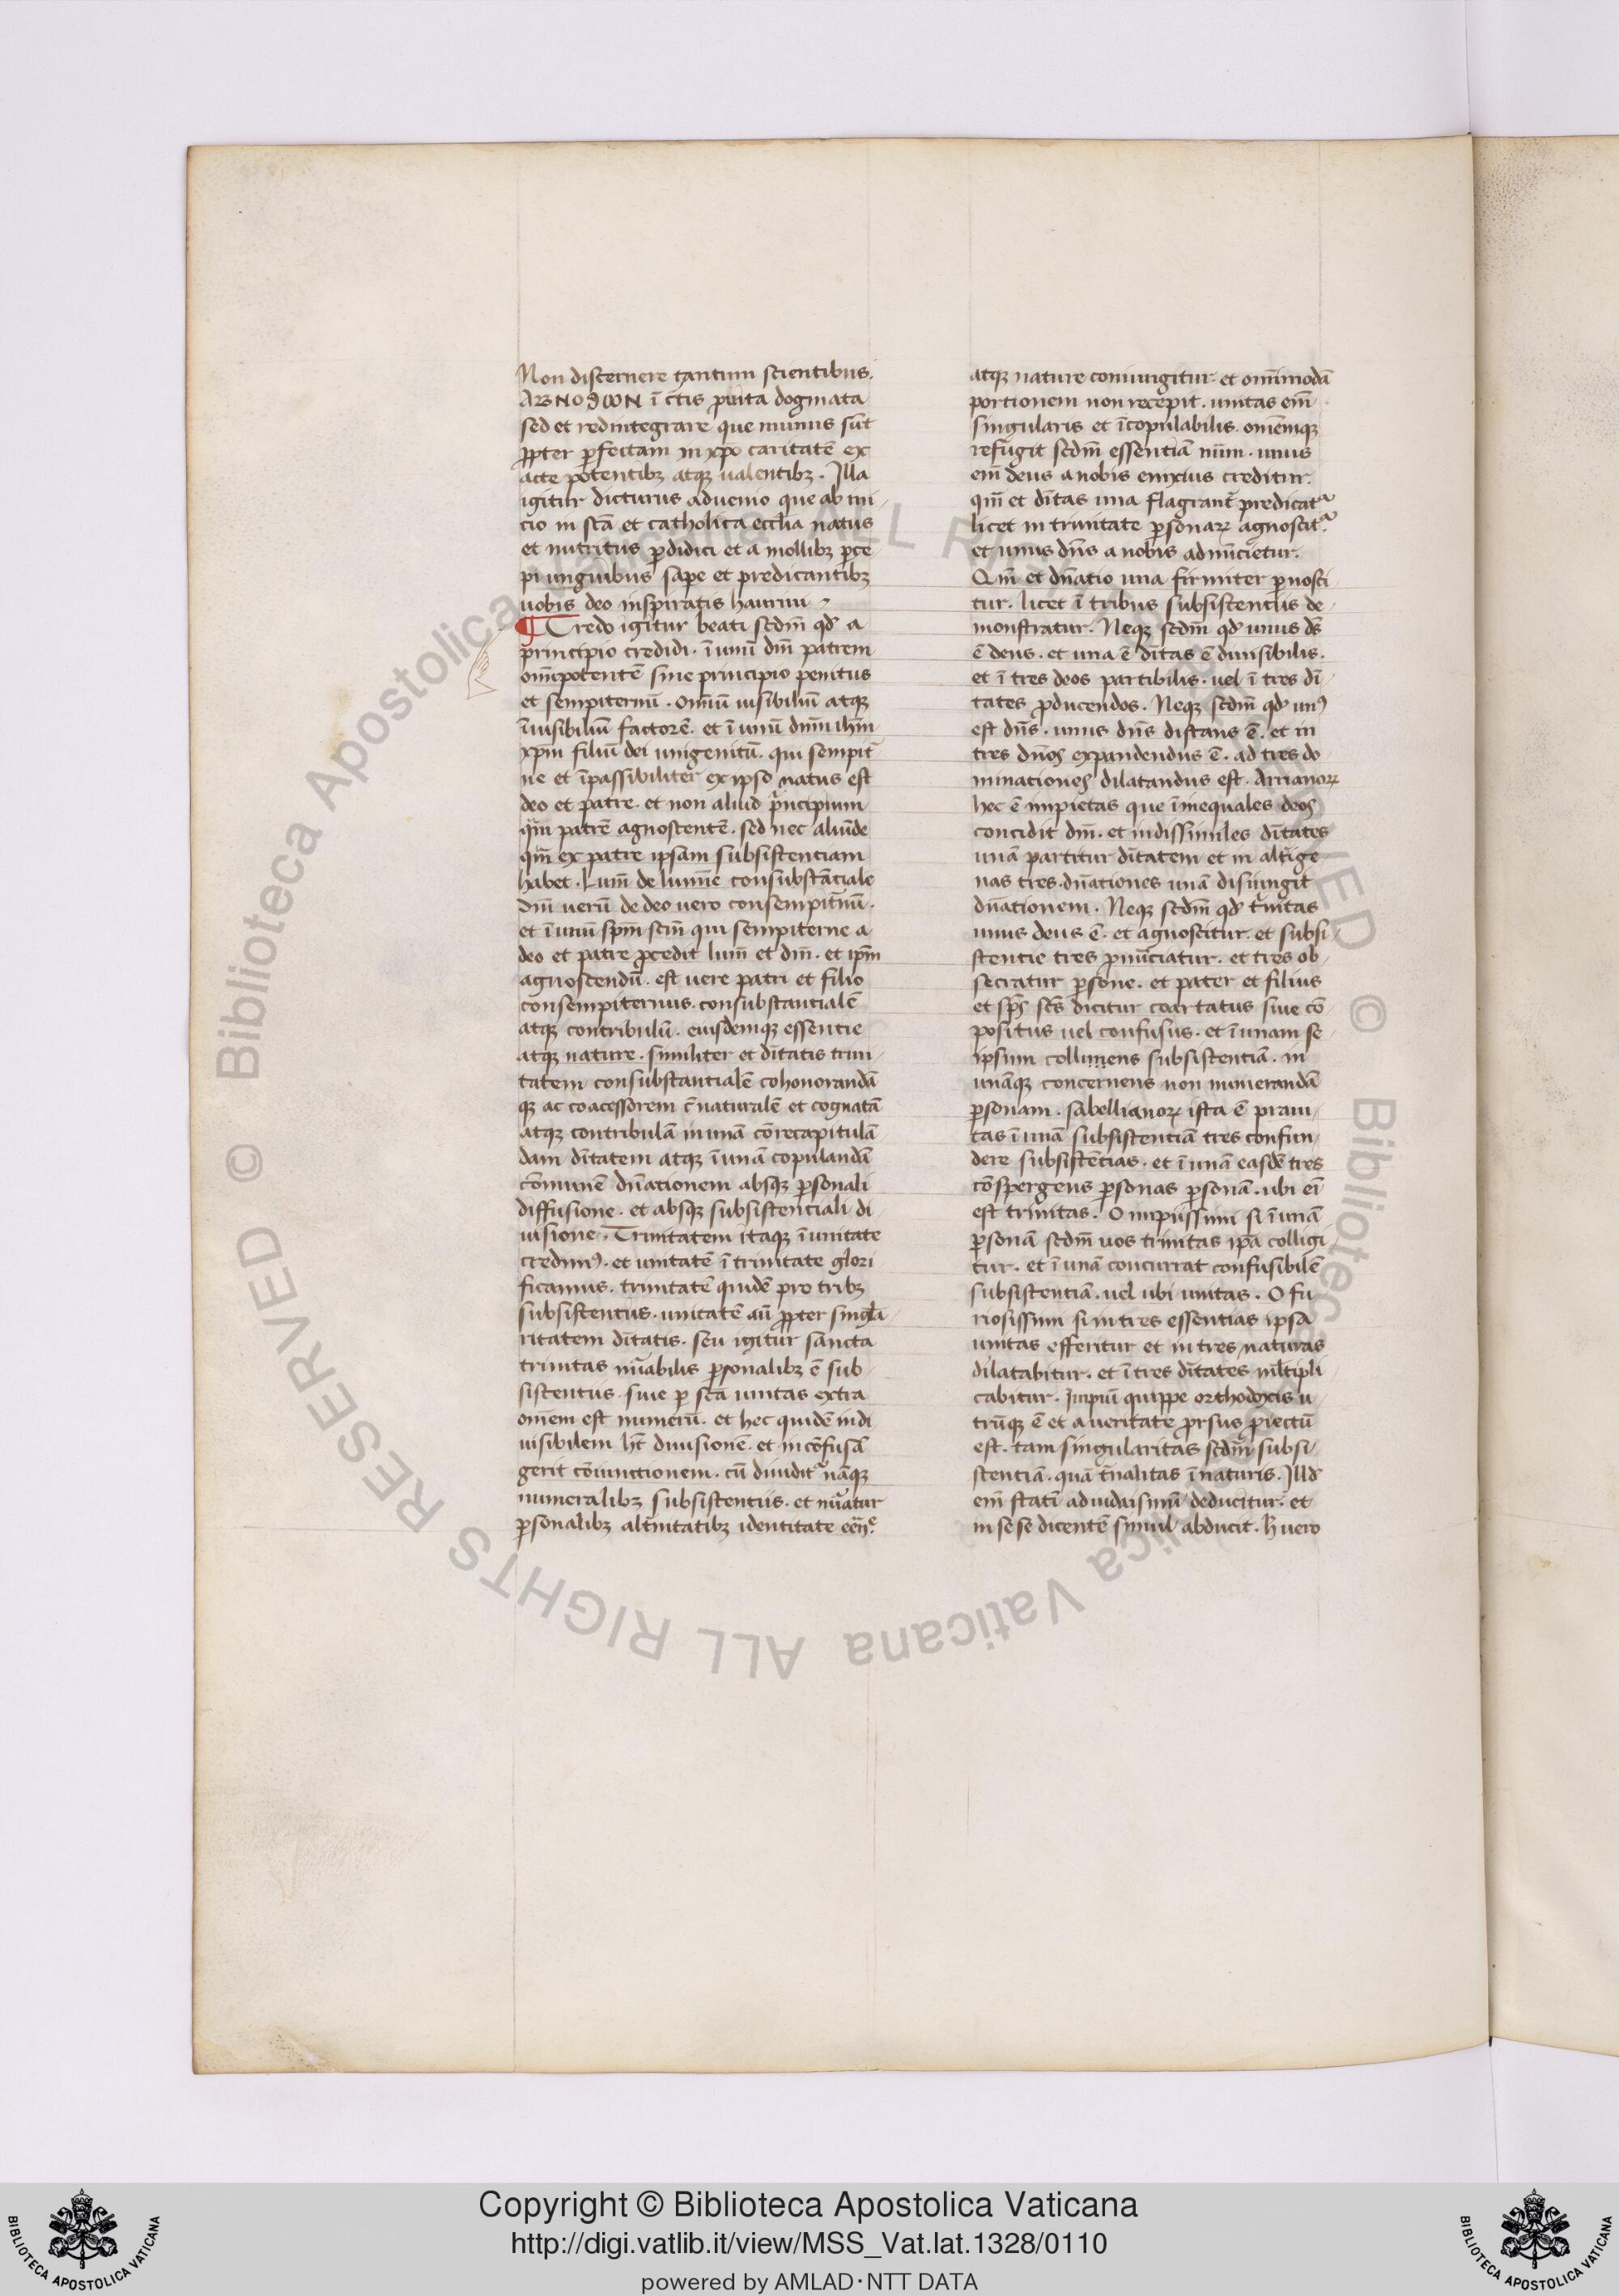 Non discernere tantum scientibus.
ABNOϑωN ī c̄tis pͥuita dogmata
sed et redintegrare que minus sūt
ꝓpter ꝑfectam in xp̄o caritatē ex
acte potentibꝫ atqꝫ ualentibꝫ. Illa
igitur dicturus aduenio que ab ini
cio in sc̄a et catholica eccl̄ia natus
et nutritus ꝑdidici et a mollibꝫ ꝑce
pi unguibus sape et predicantibꝫ
uobis deo inspiratis haurini
¶ Credo igitur beati sc̄dm̄ qd̓ a
principio credidi. ī unū dm̄ patrem
om̄ipotentē sine principio penitus
et sempiternū. omiū uisibiliū atqꝫ
īuisibiliū factorē. et ī unū dn̄m ih̄m
xp̄m filiū dei unigenitū. qui sempit̄
ne et īpassibiliter ex ipso natus est
deo et patre. et non aliud pͥncipium
qm̄ patrē agnoscentē. sed nec aliūde
qm̄ ex patre ipsam subsistentiam
habet. Lum̄ de lumīe consubstāciale
dm̄ uerū de deo uero consempit̄nū.
et ī unū sp̄m sc̄m qui sempiterne a
deo et patre ꝓcedit lum̄ et dm̄. et ip̄m
agnoscendū. est uere patri et filio
consempiternus. consubstantialē
atqꝫ contribulū. eiusdemqꝫ essentie
atqꝫ nature. similiter et dītatis trini
tatem consubstantialē cohonorandā
qꝫ ac coacessorem c̄naturalē et cognatā
atqꝫ contribulā in unā cōrecapitulā
dam dītatem atqꝫ ī unā copulandā
cōmunē dn̄ationem absqꝫ ꝑsonali
diffusione. et absqꝫ subsistenciali di
uisione. Trinitatem itaqꝫ ī unitate
credimꝰ. et unitatē ī trinitate glori
ficamus. trinitatē quidē pro tribꝫ
subsistentiis. unitatē aū ꝓpter singla
ritatem dītatis. seu igitur sancta
trinitas nūabilis ꝑsonalibꝫ ē sub
sistentiis. siue ꝑ sc̄a unitas extra
omēm est numerū. et hec quidē indi
uisibilem ht̄ diuisionē. et incōfusā
gerit cōiunctionem. cū diuidit᷑ nāqꝫ
numeralibꝫ subsistentiis. et nūatur
ꝑsonalibꝫ alt̄nitatibꝫ identitate eēn.ͤ
atqꝫ nature coniungitur. et om̄imodā
portionem non recepit. unitas em̄
singularis et īcopulabilis. omēmqꝫ
refugit sc̄dm̄ essentiā nūm. unus
em̄ deus a nobis enixius creditur.
qm̄ et dītas una flagrant̄ predicat᷑
licet in trinitate ꝑsonaꝝ agnoscit᷑.
et unus dn̄s a nobis adnūcietur.
Qm̄ et dn̄atio una firmiter ꝑnosci
tur. licet ī tribus subsistentiis de
monstratur. Neqꝫ sc̄dm̄ qd̓ unus ds̄
ē deus. et una ē dītas ē diuisibilis.
et ī tres deos partibilis. uel ī tres dī
tates ꝓducendos. Neqꝫ sc̄dm̄ qd̓ unꝰ
est dn̄s. unus dn̄s distans ē. et in
tres dn̄os expandendus ē. ad tres do
minaciones dilatandus est. Arrianoꝝ
hec ē impietas que ī inequales deos
concidit dm̄. et indissimiles dītates
unā partitur dītatem et in alt̄ige
nas tres. dn̄ationes unā disiungit
dn̄ationem. Neqꝫ sc̄dm̄ qd̓ t̄nitas
unus deus ē. et agnoscitur. et subsi
stentie tres ꝓnūciatur. et tres ob
secratur ꝑsone. et pater et filius
et sp̄s sc̄s dicitur coartatus siue cō
positus uel confusus. et ī unam se
ipsum colliniens subsistentiā. in
unāqꝫ concernens non numerandā
ꝑsonam. sabellianoꝝ ista ē praui
tas ī unā subsistentiā tres confun
dere subsistēcias. et ī unā easdē tres
cōspergens ꝑsonas ꝑsonā. ubi eī
est trinitas. O impiissimi si ī unā
ꝑsonā sc̄dm̄ uos trinitas ip̄a colligi
tur. et ī unā concurrat confusibilē
subsistentiā. uel ubi unitas. O fu
riosissimi si in tres essentias ipsa
unitas efferitur et in tres naturas
dilatabitur. et ī tres dītates mĺtipli
cabitur. Impiū quippe orthodoxis u
trūqꝫ ē et a ueritate ꝓrsus ꝓiectū
est. tam singularitas sc̄dm̄ subsi
stentiā. quā t̄nalitas ī naturis. Illd̓
em̄ statī ad iudaismū deducitur. et
in se se dicentē simul abducit. h̄ uero
© Biblioteca Apostolica Vaticana ALL RIGHTS RESERVED © Biblioteca Apostolica Vaticana ALL RIGHTS RESERVED
Copyright © Biblioteca Apostolica Vaticana
http://digi.vatlib.it/view/MSS_Vat.lat.1328/0110
powered by AMLAD·NTT DATA
BIBLIOTECA APOSTOLICA VATICANA
BIBLIOTECA APOSTOLICA VATICANA